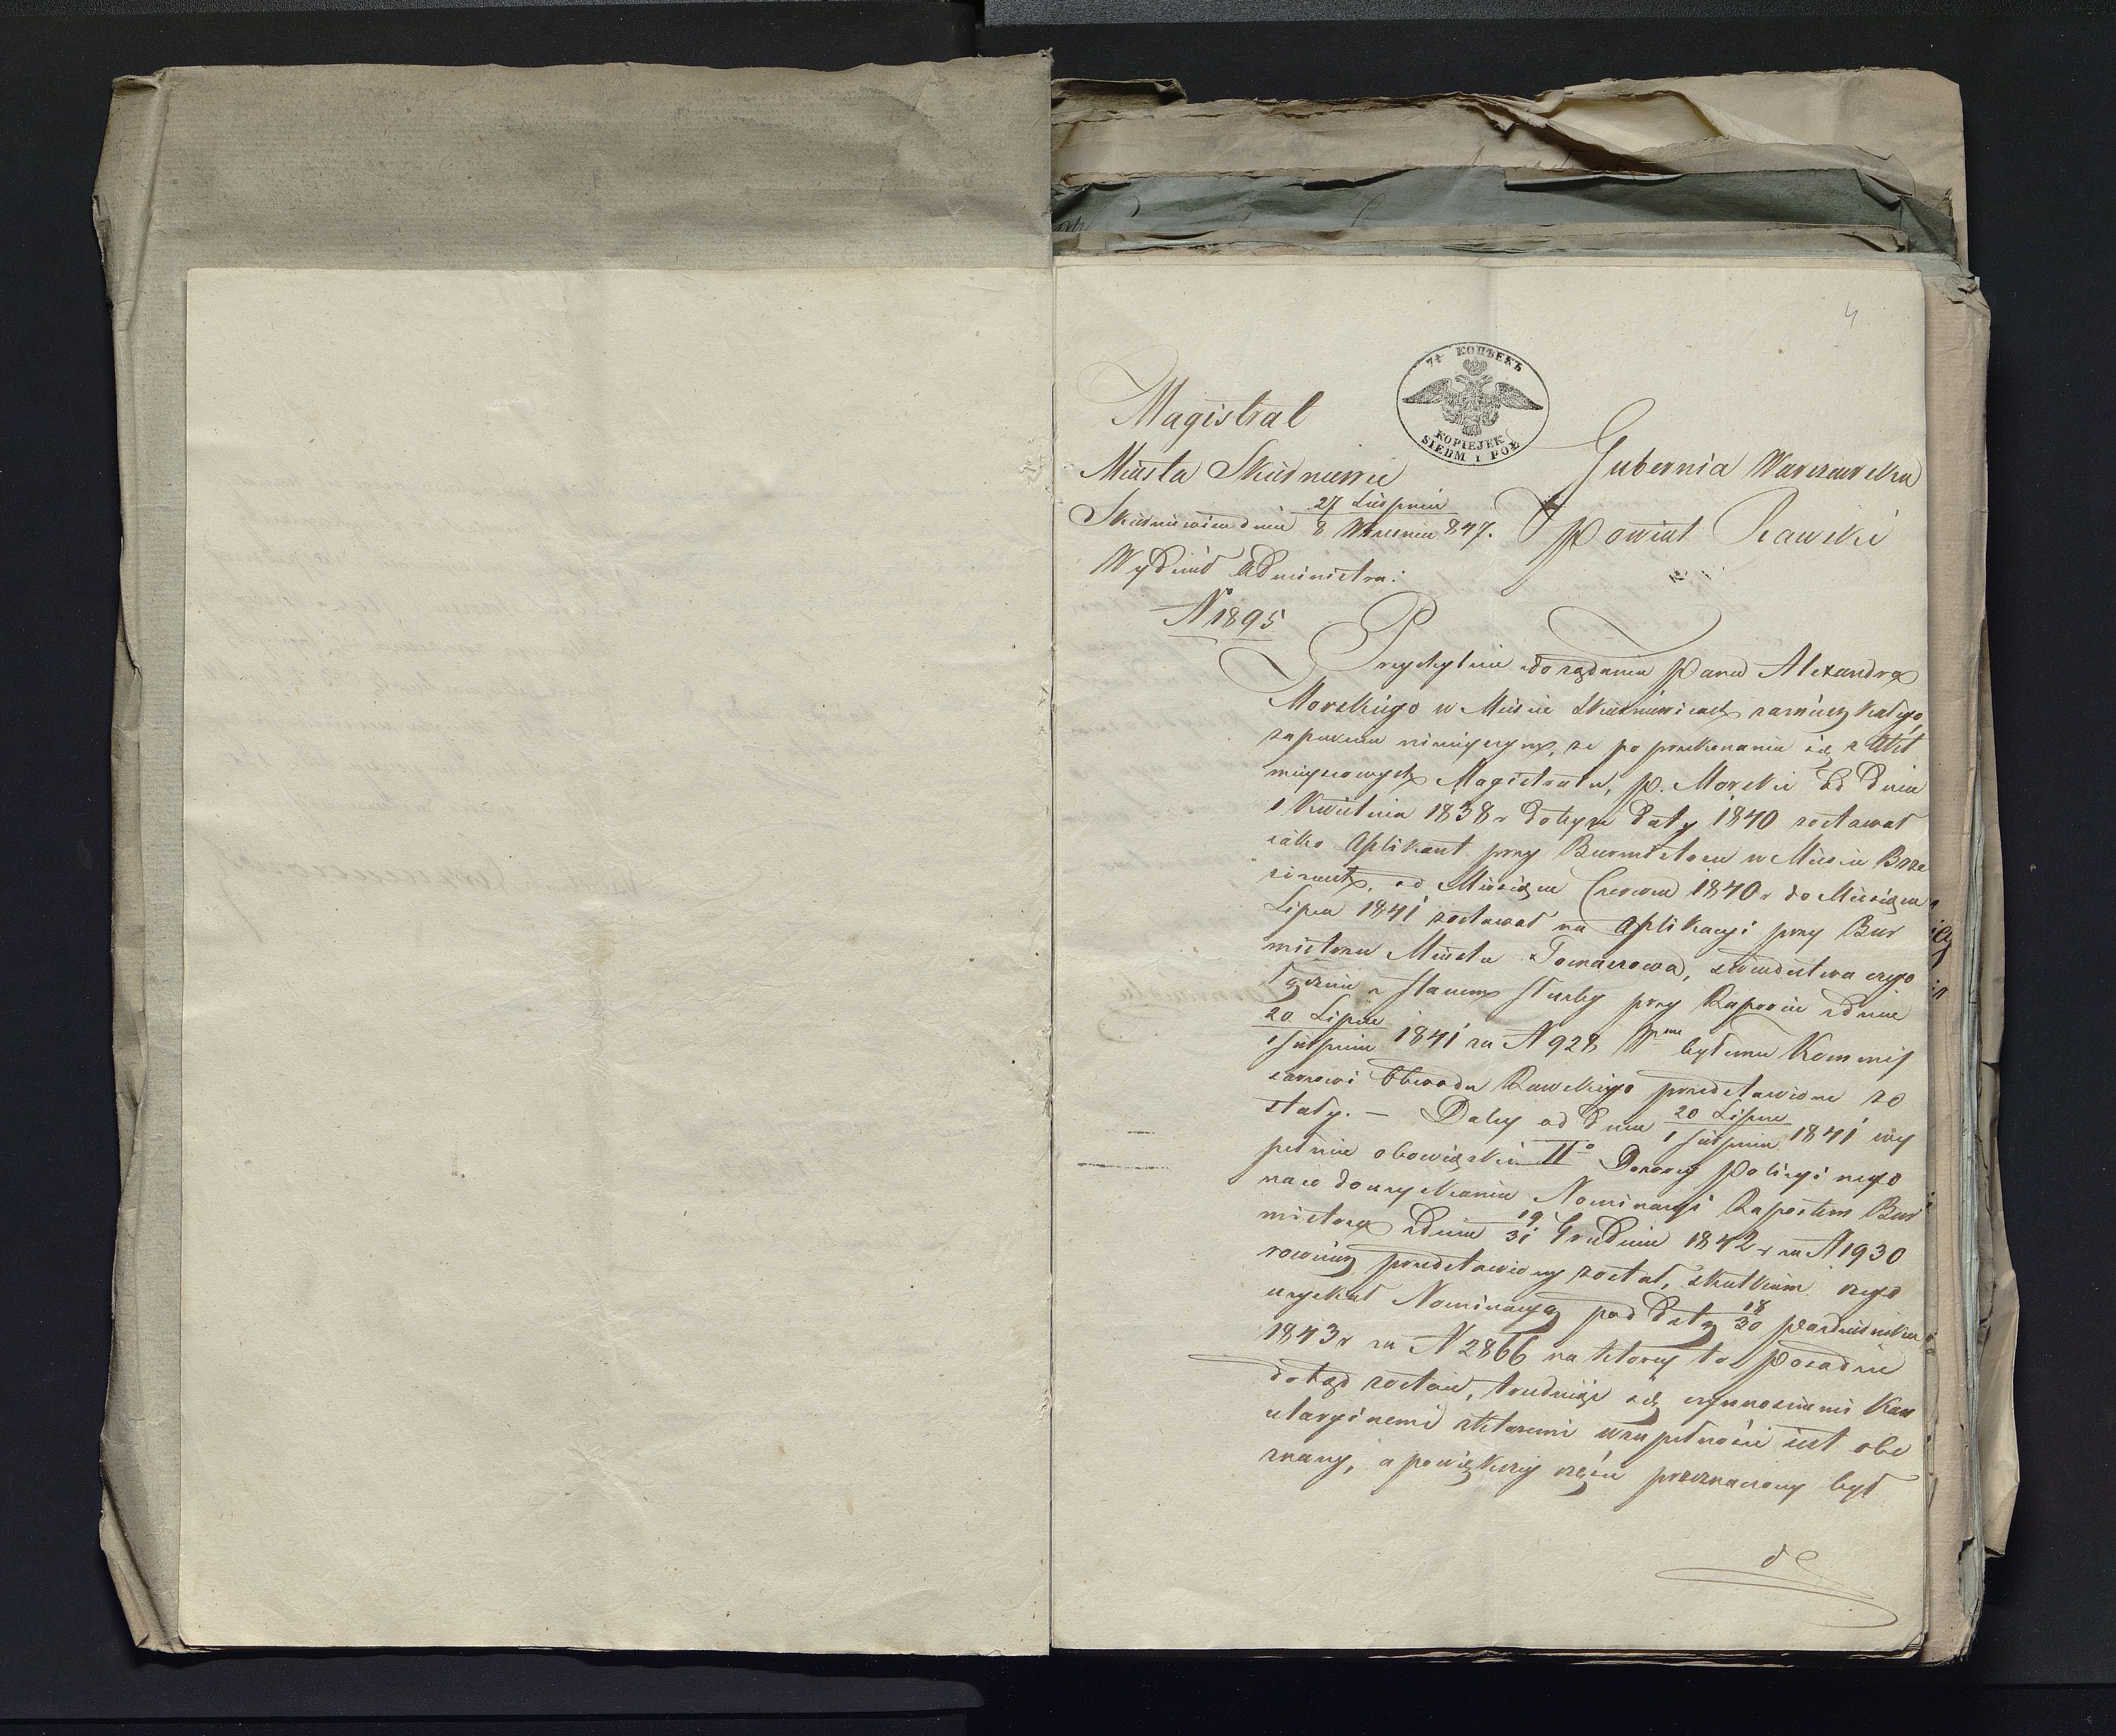 4
7½ КОПѢЕКЪ
KOPIEJEK
SIEDM I PÓŁ
Magistrat
Miasta Skierniewic
Gubernia Warszawska
Powiat Rawski
Skierniewice dnia 27 Sierpnia / 8 Września 847.
Wydział Administra:
N 1895
Przychylnie do żądania Pana Alexandra
Morskiego w Mieście Skierniewicach zamieszkałego,
zapewnia niniejszym, że po przekonaniu się z Akt
miejscowych Magistratu, P. Morski od dnia
1 Kwietnia 1838 r do tejże daty 1840 zostawał
iako Aplikant przy Burmistrzu w Mieście Brze
zinach, od Miesiąca Czerwca 1840 r do Miesiąca
Lipca 1841 zostawał na Aplikacyi przy Bur
mistrzu Miasta Tomaszowa, świadectwa czego
łącznie z stanem służby przy Raporcie z dnia
20 Lipca / 1 Sierpnia 1841 za N 928 byłemu Kommis
sarzowi Obwodu Rawskiego przedstawione zo
stały. — Daley od dnia 20 Lipca / 1 Sierpnia 1841 wy
pełnia obowiązki II° Dozorcy Policyinego
na co do uzyskania Nominacyi Raportem Bur
mistrza z dnia 19/31 Grudnia 1842 r za N 1930
rownież przedstawiony został, skutkiem czego
uzyskał Nominacyą pod datą 18/30 Października
1843 r za N 2866 na ktorey to Posadzie
dotąd zostaie, trudniąc się czynnościami Kan
celaryinemi z ktoremi w zupełności iest obe
znany, a po większey części przeznaczony był